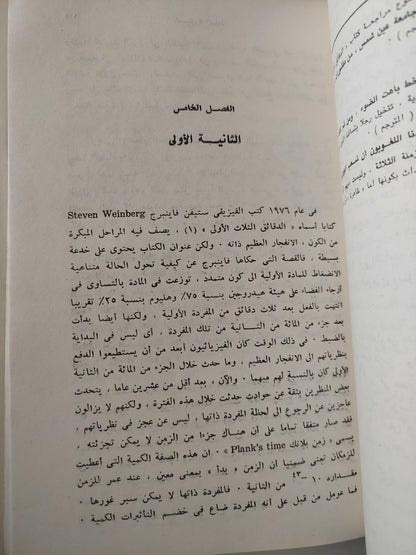 الفصل الخامس
الثانية الأولى
فى عام ١٩٧٦ كتب الفيزيقى ستيفن فاينبرج Steven Weinberg
كتابا أسماه « الدقائق الثلاث الأولى » (١) ، يصف فيه المراحل المبكرة
من الكون ، الانفجار العظيم ذاته ٠ ولكن عنوان الكتاب يحتوى على خدعة
بسيطة ، فالقصة التى حكاها فاينبرج عن كيفية تحول الحالة متناهية
الانضغاط للمادة الأولية الى كون متمدد ، توزعت فى المادة بالتساوى فى
أرجاء الفضاء على هيئة هيدروجين بنسبة ٧٥٪ وهليوم بنسبة ٢٥٪ تقريبا
انتهت بالفعل بعد ثلاث دقائق من المفردة الأولية ، ولكنها أيضا بدأت
بعد جزء من المائة من الثانية من تلك المفردة ، أى ليس فى البداية
بالضبط ٠ فى ذلك الوقت كان الفيزيائيون أبعد من أن يستطيعوا الدفع
بنظرياتهم الى الانفجار العظيم ، وما حدث خلال الجزء من المائة من الثانية
الأولى كان بالنسبة لهم مبهما ٠ والآن ، بعد أقل من عشرين عاما ، يتحدث
بعض المنظرين بثقة عن حوادث حدثت خلال هذه الفترة ، ولكنهم لا يزالون
عاجزين عن الرجوع الى لحظة المفردة ذاتها ، ليس عن عجز فى نظرياتهم ،
فقد صار متفقا تماما على أن هناك جزءا من الزمن لا يمكن تجزئته ،
يسمى « زمن بلانك Plank's time » ٠ ان هذه الصفة الكمية التى أعطيت
للزمكان تعنى ضمنيا أن الزمن « بدأ » بمعنى معين ، عند عمر للزمن
مقداره ١٠ –٤٣ من الثانية ٠ فالمفردة ذاتها لا يمكن سبر غورها ،
فما عومل من قبل على أنه المفردة ضاع فى خضم التأثيرات الكمية ٠
جامعة عين شمس ،